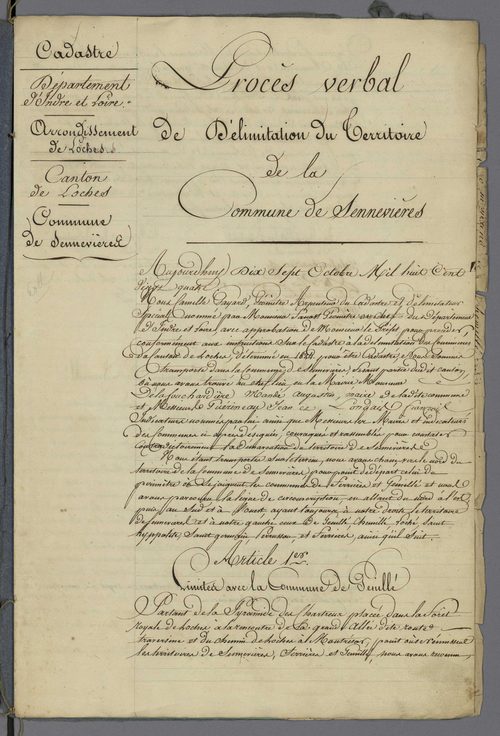 Cadastre
Département
d'Indre et Loire.
Arrondissement
de Loches
Canton
de Loches
Commune
de Sennevières
Procès verbal
de Délimitation du Territoire
de la
Commune de Sennevières
Aujourdhuy Dix Sept Octobre Mil huit Cent
Vingt quatre
Nous famille Géomètre du Cadastre et délimitateur
Spécial nommé par Monsieur Géomètre en chef du Département
d'Indre et Loire avec approbation de Monsieur le Préfet pour procéder
conformément aux instructions sur le Cadastre à la délimitation des Communes
du Canton de Loches Déterminé en 1824 pour être Cadastré, Nous Sommes
transporté dans la Commune de Sennevières faisant partie dudit canton
où nous avons trouvé au chef lieu en la Mairie Monsieur
Delafouchardière Augustin, maire de ladite commune
et Messieurs Jean
Indicateurs nommés par lui ainsi que Messieurs les Maires et indicateurs
des Communes ci après désignés, convoqués et rassemblés pour constater
contradictoirement la démarcation du territoire de Sennevières
Nous étant transporté sur le terrein, nous avons champs vers le nord du
territoire de la Commune de Sennevières pour point de départ celui du
périmètre où se joignent les communes de Ferrières et Genillé et nous
avons parcouru la ligne de circonscription en allant du nord à l'est
puis au Sud et à l'ouest ayant toujours à notre droite le territoire
de Sennevières et à notre gauche ceux de Genillé, Chemillé, Loché, Saint
hyppolite, Saint germain, Perrusson et Ferrières, ainsi qu'il suit
Article 1er.
Limites avec la Commune de Genillé
Partant de la Pyramide des Chartreux placée dans la forêt
Royale de Loches à la rencontre de la grande Allée dite route
traversine et du chemin de Loches à Montrésor, point où se réunissent
les territoires de Sennevières, Ferrières et Genillé, nous avons reconnu